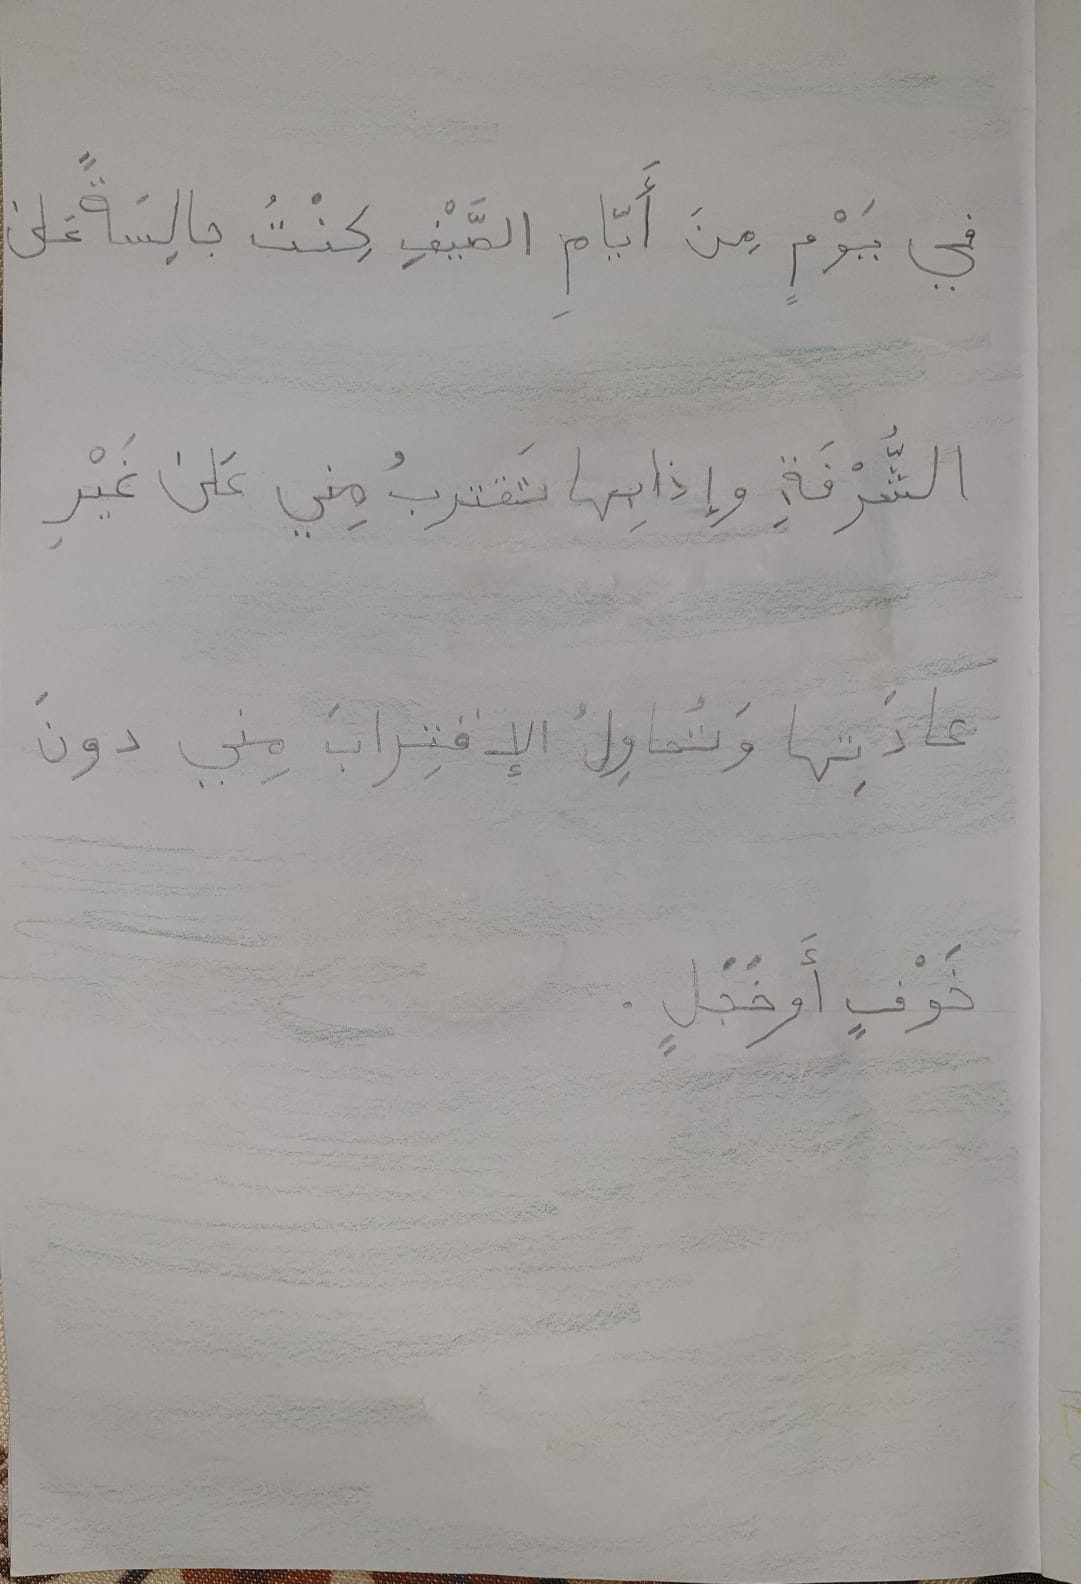 في يَوْمٍ مِنَ أَيّامِ الصَّيْفِ كِنْتُ جالِسَةً عَلىٰ
الشُّرْفَةِ وإذابِها تَقتربُ مِني عَلىٰ غَيْرِ
عادَتِها وَتُحاوِلُ الإقتِرابَ مِني دونَ
خَوْفٍ أَوخَجَلٍ .